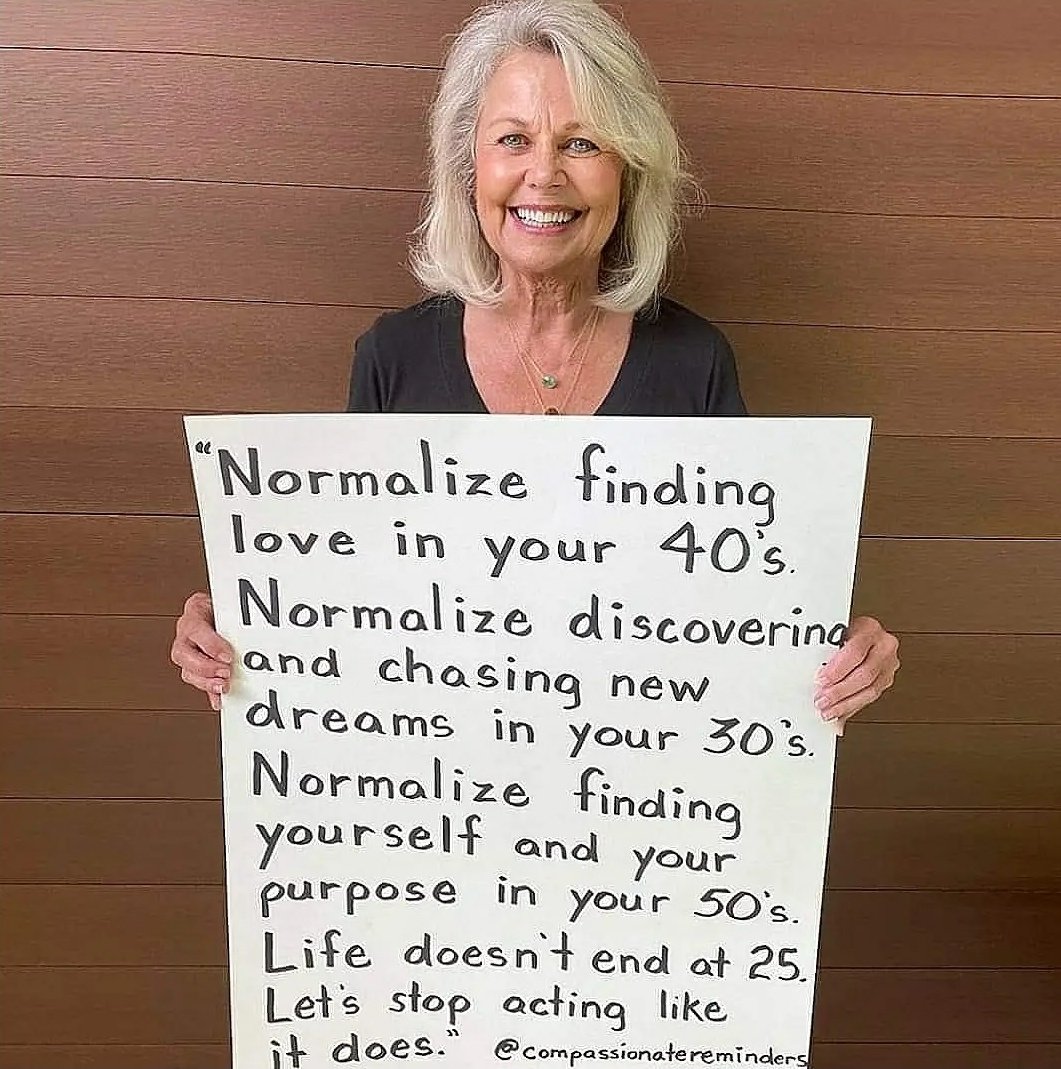 “Normalize finding
love in your 40's.
Normalize discovering
and chasing new
dreams in your 30's.
Normalize finding
yourself and your
purpose in your 50's.
Life doesn't end at 25.
Let's stop acting like
it does.” @compassionatereminders